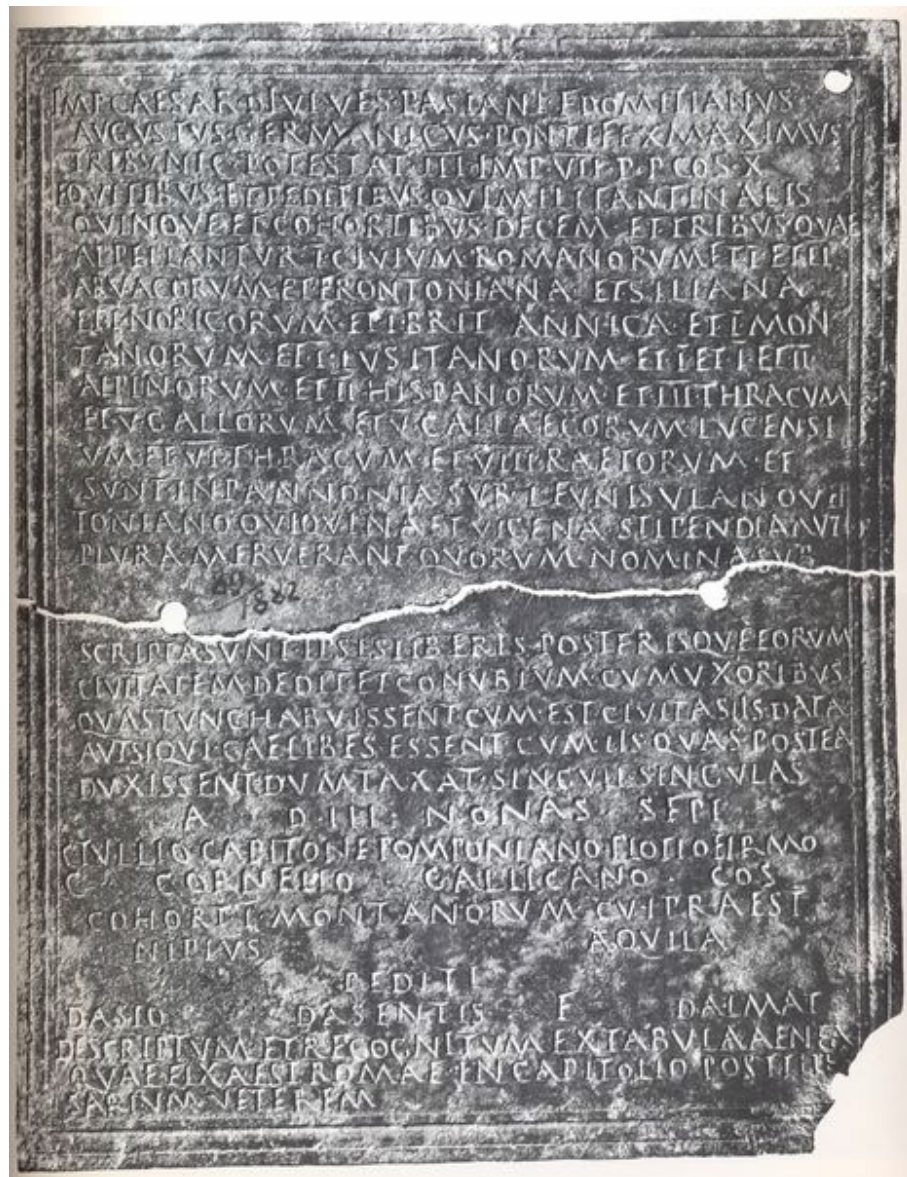 IMP·CAESAR·DIVI·VESPASIANI·F·DOMITIANVS
AVGVSTVS·GERMANICVS·PONTIFEX MAXIMVS
TRIBVNIC·POTESTAT·IIII·IMP·VII·P·P·COS X
EQVITIBVS·ET PEDITIBVS·QVI MILITANT IN ALIS
QVINQVE ET COHORTIBVS DECEM ET TRIBVS QVAE
APPELLANTVR·I·CIVIVM·ROMANORVM ET I ET II
ARVACORVM ET FRONTONIANA ET SILIANA
ET I NORICORVM·ET I BRIT ANNICA·ET I MON
TANORVM ET I·LVSITANORVM ET I ET I ET II
ALPINORVM·ET II HISPANORVM·ET III THRACVM
ET V·GALLORVM ET V CALLAECORVM LVCENSI
VM·ET VI THRACVM ET VIII RAETORVM ET
SVNT IN PANNONIA SVB L FVNISVLANO
TONIANO QVI QVINA ET VICENA STIPENDIA
PLVRA MERVERANT QVORVM NOMINA
69/882
SCRIPTA SVNT IPSIS LIBERIS POSTERISQVE EORVM
CIVITATEM DEDIT ET CONVBIVM CVM VXORIBVS
QVAS TVNC HABVISSENT CVM EST CIVITAS IIS DATA
AVT SI QVI CAELIBES ESSENT CVM IIS QVAS POSTEA
DVXISSENT DVMTAXAT SINGVLI SINGVLAS
A D·III NONAS SEPT
C TVLLIO CAPITONE POMPONIANO PLOTIO FIRMO
C CORNELIO GALLICANO · COS
COHORT I·MONTANORVM·CVI PRAEST
NIPIVS AQVILA
PEDITI
DASIO DASENTIS F DALMAT
DESCRIPTVM ET RECOGNITVM EX TABVLA AENEA
QVAE FIXA EST ROMAE IN CAPITOLIO POST
SARIVM·VETEREM